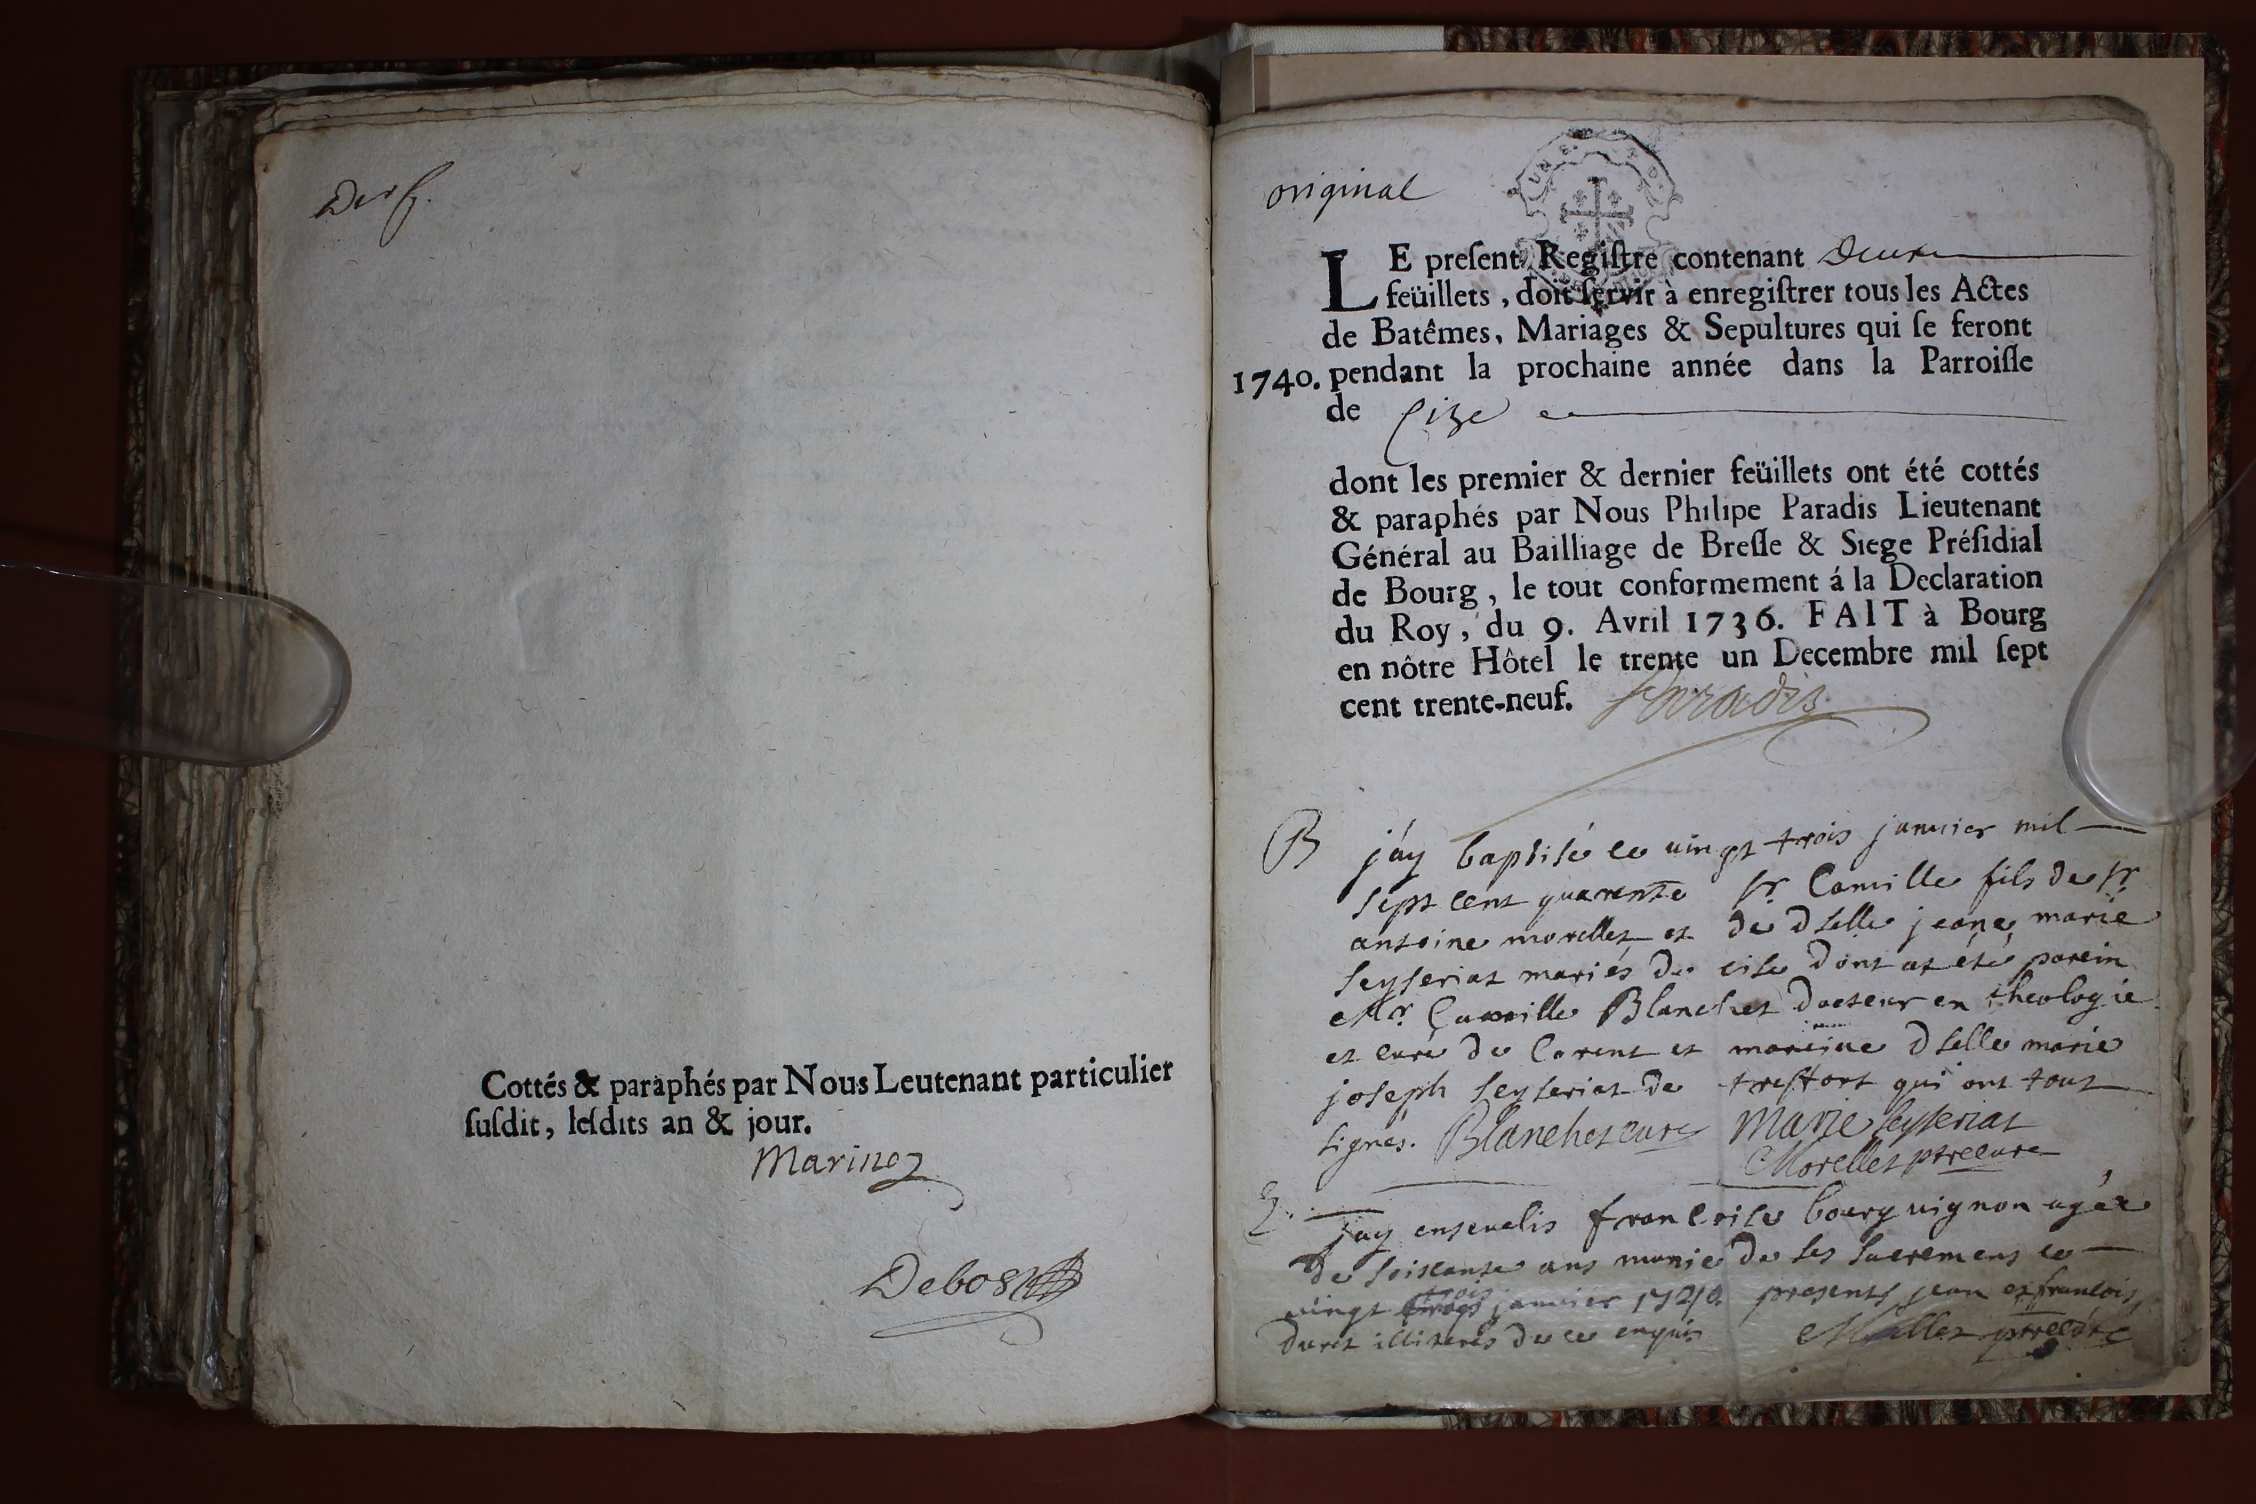 Cottés & paraphés par Nous Leutenant particulier
ſuſdit, leſdits an & jour.
Marinoz
Debost
original
LE preſent Regiſtre contenant Deux
feüillets, doit ſervir à enregiſtrer tous les Actes
de Batêmes, Mariages & Sepultures qui ſe feront
1740. pendant la prochaine année dans la Parroiſſe
de Cize
dont les premier & dernier feüillets ont été cottés
& paraphés par Nous Philipe Paradis Lieutenant
Général au Bailliage de Breſſe & Siege Préſidial
de Bourg, le tout conformement á la Declaration
du Roy, du 9. Avril 1736. FAIT à Bourg
en nôtre Hôtel le trente un Decembre mil ſept
cent trente-neuf. Paradis
B j'ay baptisé ce vingt trois janvier mil
sept cent quarente sr. Camille fils de sr.
antoine morellet et de dselle jeane marie
seyseriat mariés de cise dont at été parein
Mr. Camille Blanchet docteur en theologie
et curé de Corent et mareine dselle marie
joseph seyseriat de treffort qui ont tout
signés. Blanchet curé Marie seyseriat
Morellet ptre curé
j'ay ensevelis francoise bourguignon agée
de soiscante ans munie de ses sacremens ce
vingt trois janvier 1740. presents jean et francois
duret illiterés de ce enquis Morellet ptre curé